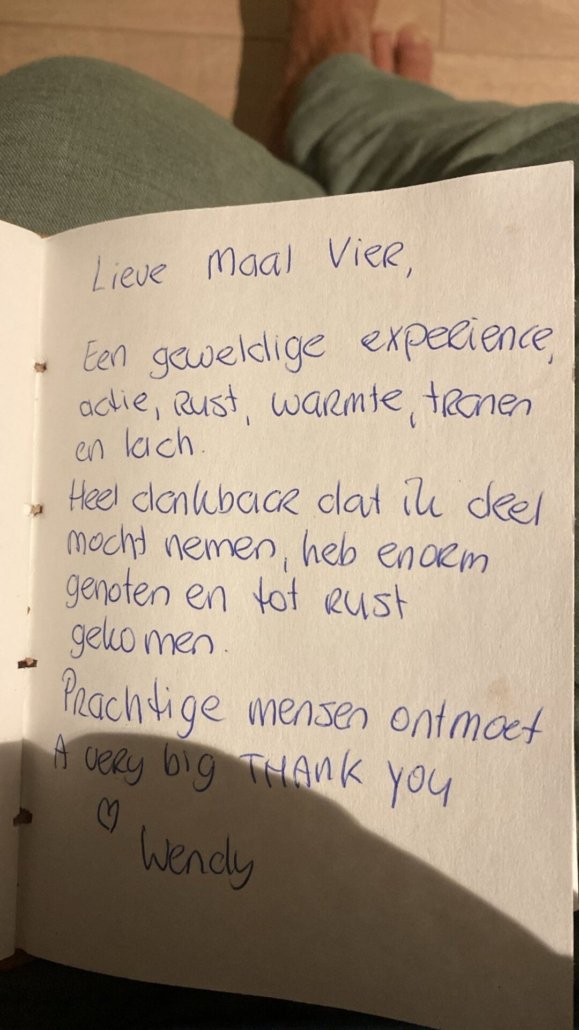 Lieve Maal Vier,
Een geweldige experience,
actie, Rust, warmte, tranen
en lach.
Heel dankbaar dat ik deel
mocht nemen, heb enorm
genoten en tot Rust
gekomen.
Prachtige mensen ontmoet
A very big THANK YOU
♡
Wendy